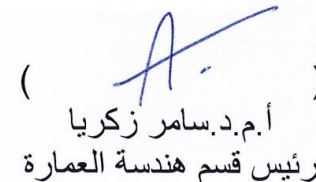 ( )
أ.م.د.سامر زكريا
رئيس قسم هندسة العمارة